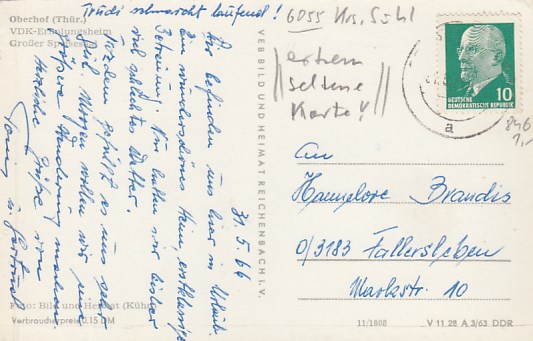 Trudi schnarcht laufend!
Oberhof (Thür.)
VDK-Erholungsheim
Großer
31.5.66
Wir befinden uns hier in Urlaub.
Ein wunderschönes Heim, erstklassige
Betreuung. Nur haben wir bisher
viel schlechtes Wetter.
Trotzdem gefällt es uns sehr
gut. Morgen wollen wir eine
größere Wanderung machen.
Herzliche Grüße von
u. Gertrud
Foto: Bild und Heimat (Kühn)
Verbraucherpreis 0.15 DM
VEB BILD UND HEIMAT REICHENBACH I. V.
6055 Krs. Suhl
extrem
seltene
Karte!
10
DEUTSCHE
DEMOKRATISCHE REPUBLIK
a
846
1,-
An
Hannelore Brandis
0/3183 Fallersleben
Marktstr. 10
11/1808 V 11 28 A 3/63 DDR